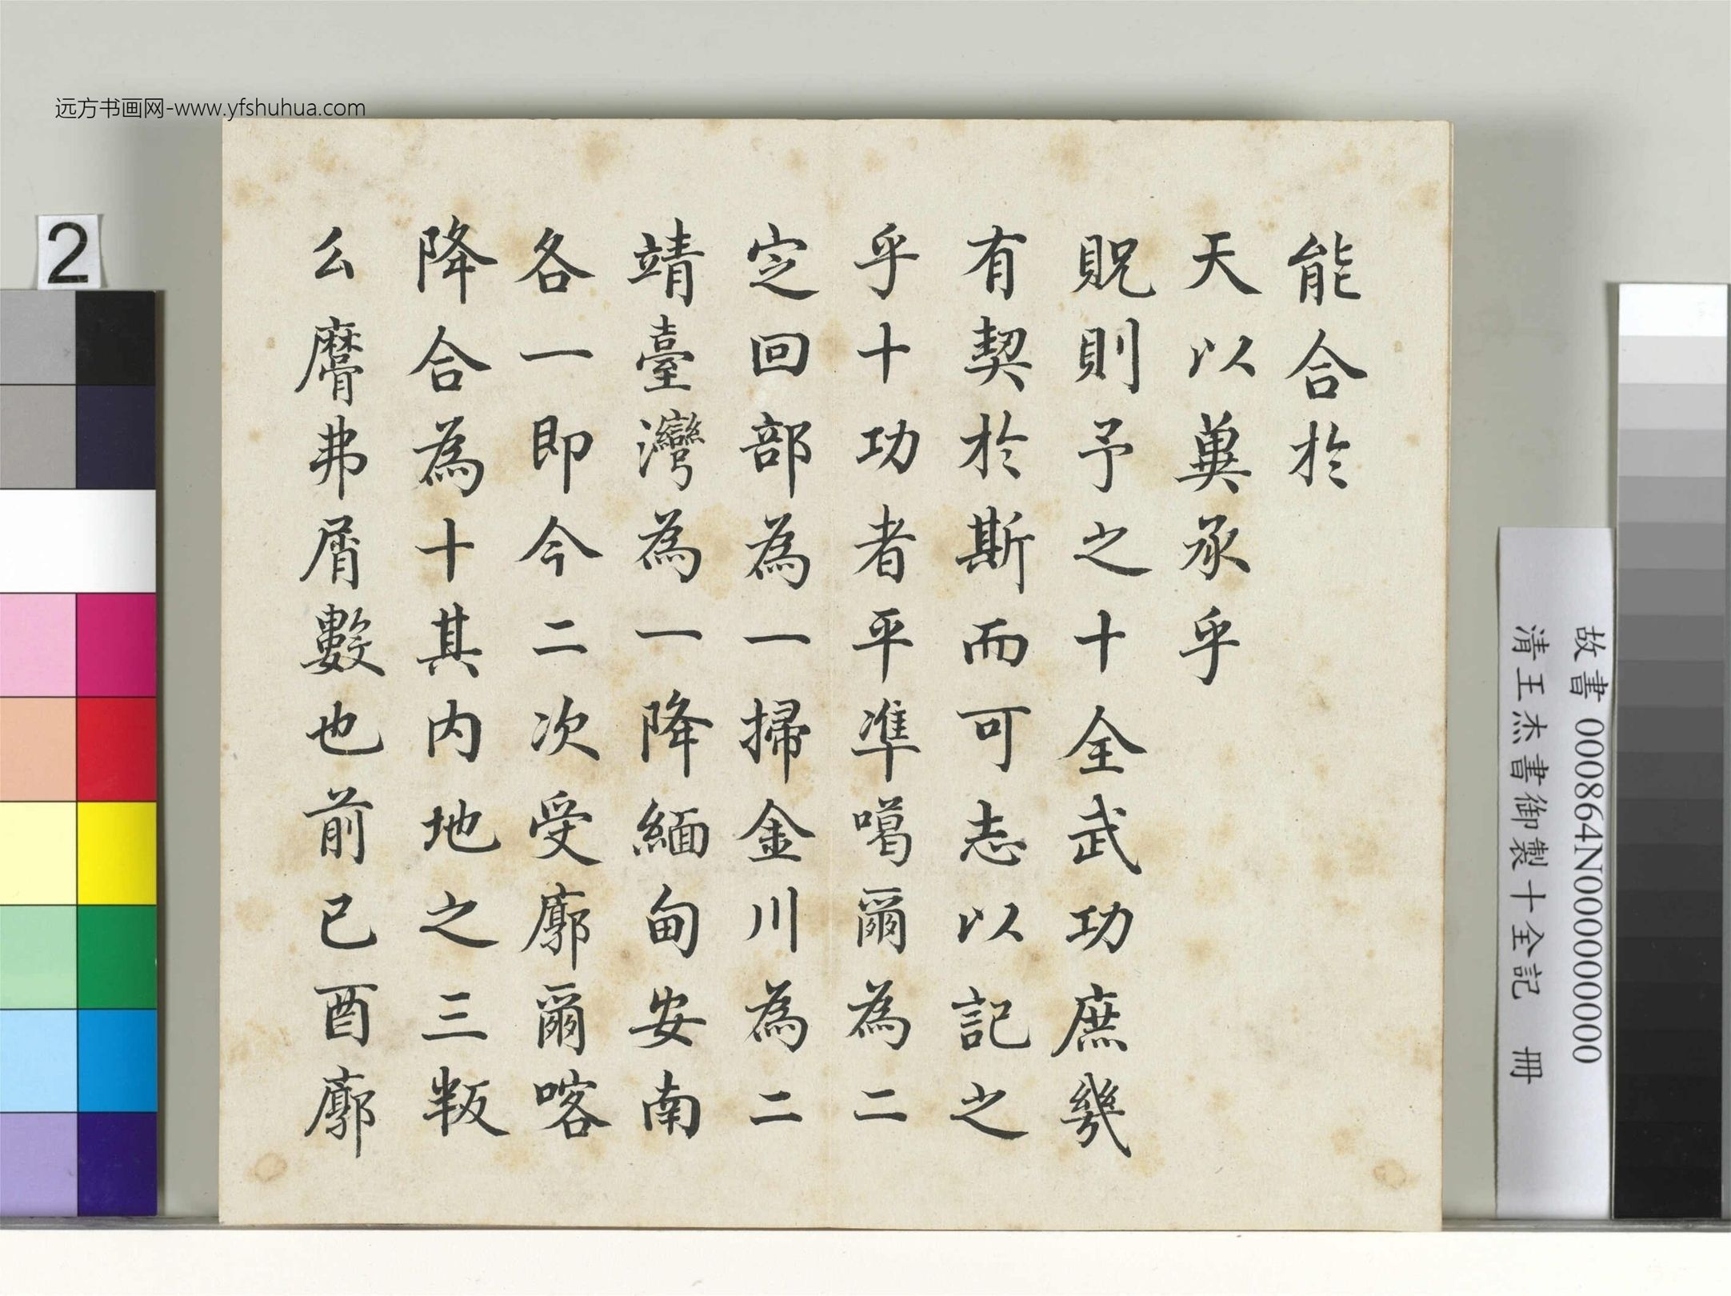 远方书画网-www.yfshuhua.com
2
能合於
天以冀承乎
貺則予之十全武功庶幾
有契於斯而可志以記之
乎十功者平準噶爾為二
定回部為一掃金川為二
靖臺灣為一降緬甸安南
各一即今二次受廓爾喀
降合為十其內地之三叛
么䯢弗屑數也前己酉廓
故書 000864N000000000
清王杰書御製十全記 冊